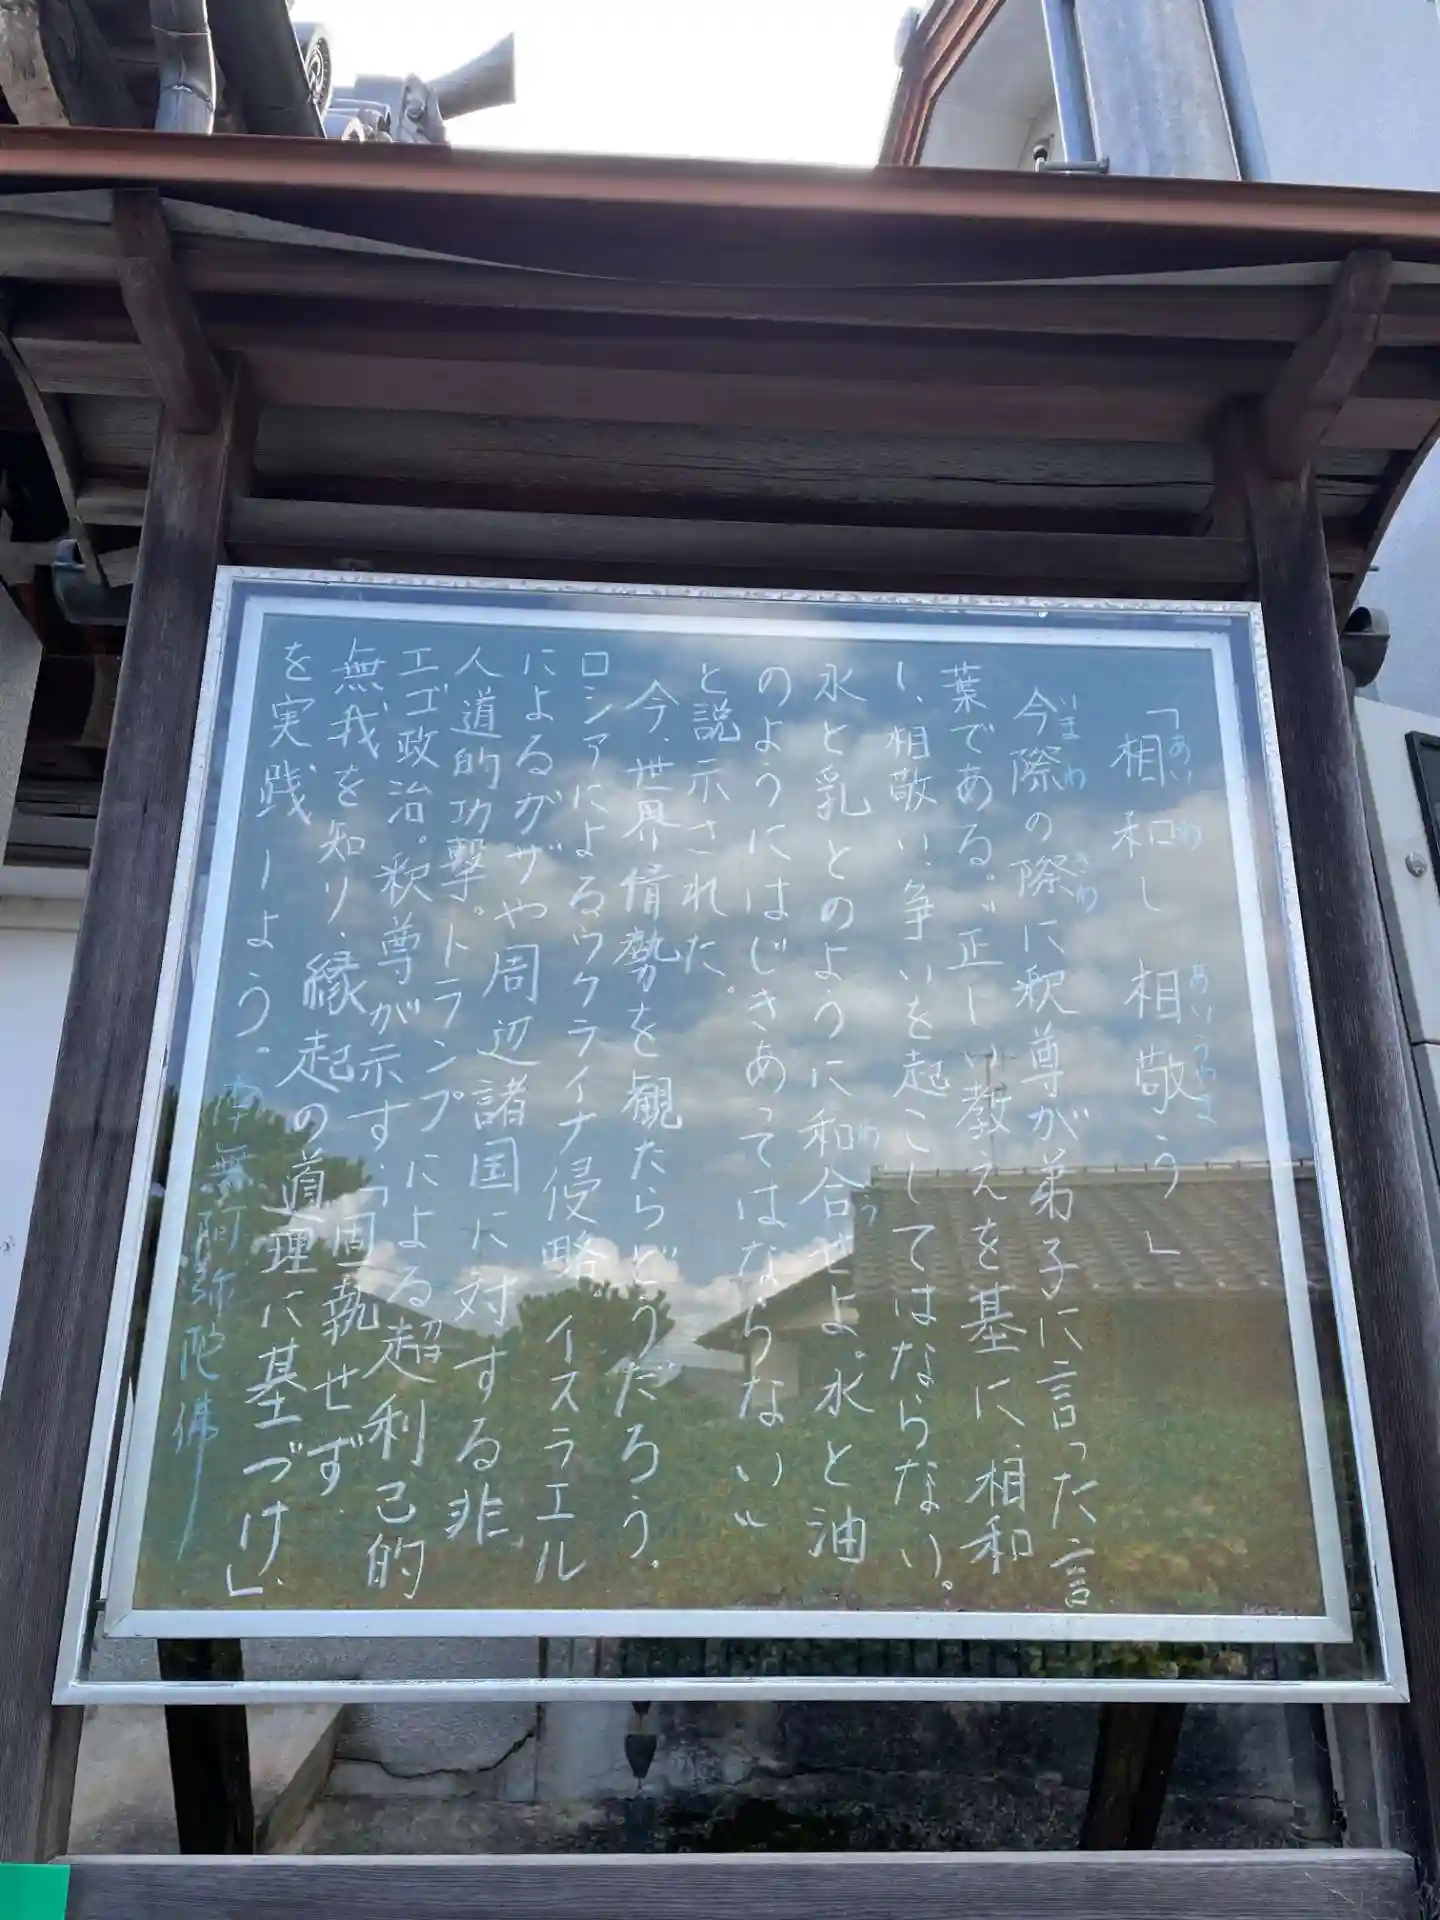 「相和し 相敬う」
あいわ あいうやま
今際の際に釈尊が弟子に言った言
いまわ きわ
葉である。〝正しい教えを基に、相和
し、相敬い、争いを起こしてはならない。
水と乳とのように和合せよ。水と油
わごう
のようにはじきあってはならない〟
と説示された。
今、世界情勢を観たらどうだろう。
ロシアによるウクライナ侵略。イスラエル
によるガザや周辺諸国に対する非
人道的功撃。トランプによる超利己的
エゴ政治。釈尊が示す、「固執せず、
無我を知り、縁起の道理に基づけ」、
を実践しよう。南無阿弥陀佛